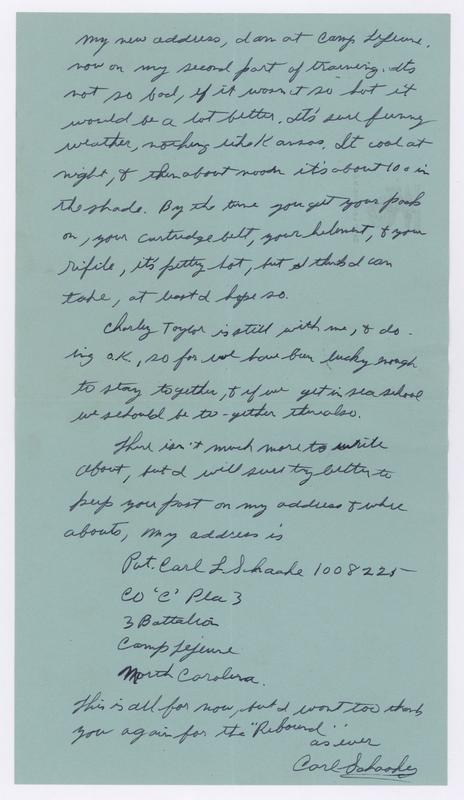 my new address, I am at Camp Lejeune,
now on my second part of training. It's
not so bad, if it wasn't so hot it
would be a lot better. It's sure funny
weather, nothing like Kansas. It cool at
night, & then about noon it's about 100 in
the shade. By the time you get your pack
on, your cartridge belt, your helment, & your
rifile, it's pretty hot, but I think I can
take, at least I hope so.
Charley Taylor is still with me, & do-
ing O.K., so far we have been lucky enough
to stay together, & if we get in sea school
we schould be to-gether there also.
There isn't much more to write
about, but I will sure try better to
keep you post on my address & where
abouts, my address is
Pvt. Carl L Schaake 1008225
CO 'C' Pla 3
3 Battalion
Camp Lejeune
North Carolina.
This is all for now, but I want too thank
you again for the "Rebound"
as ever
Carl Schaake